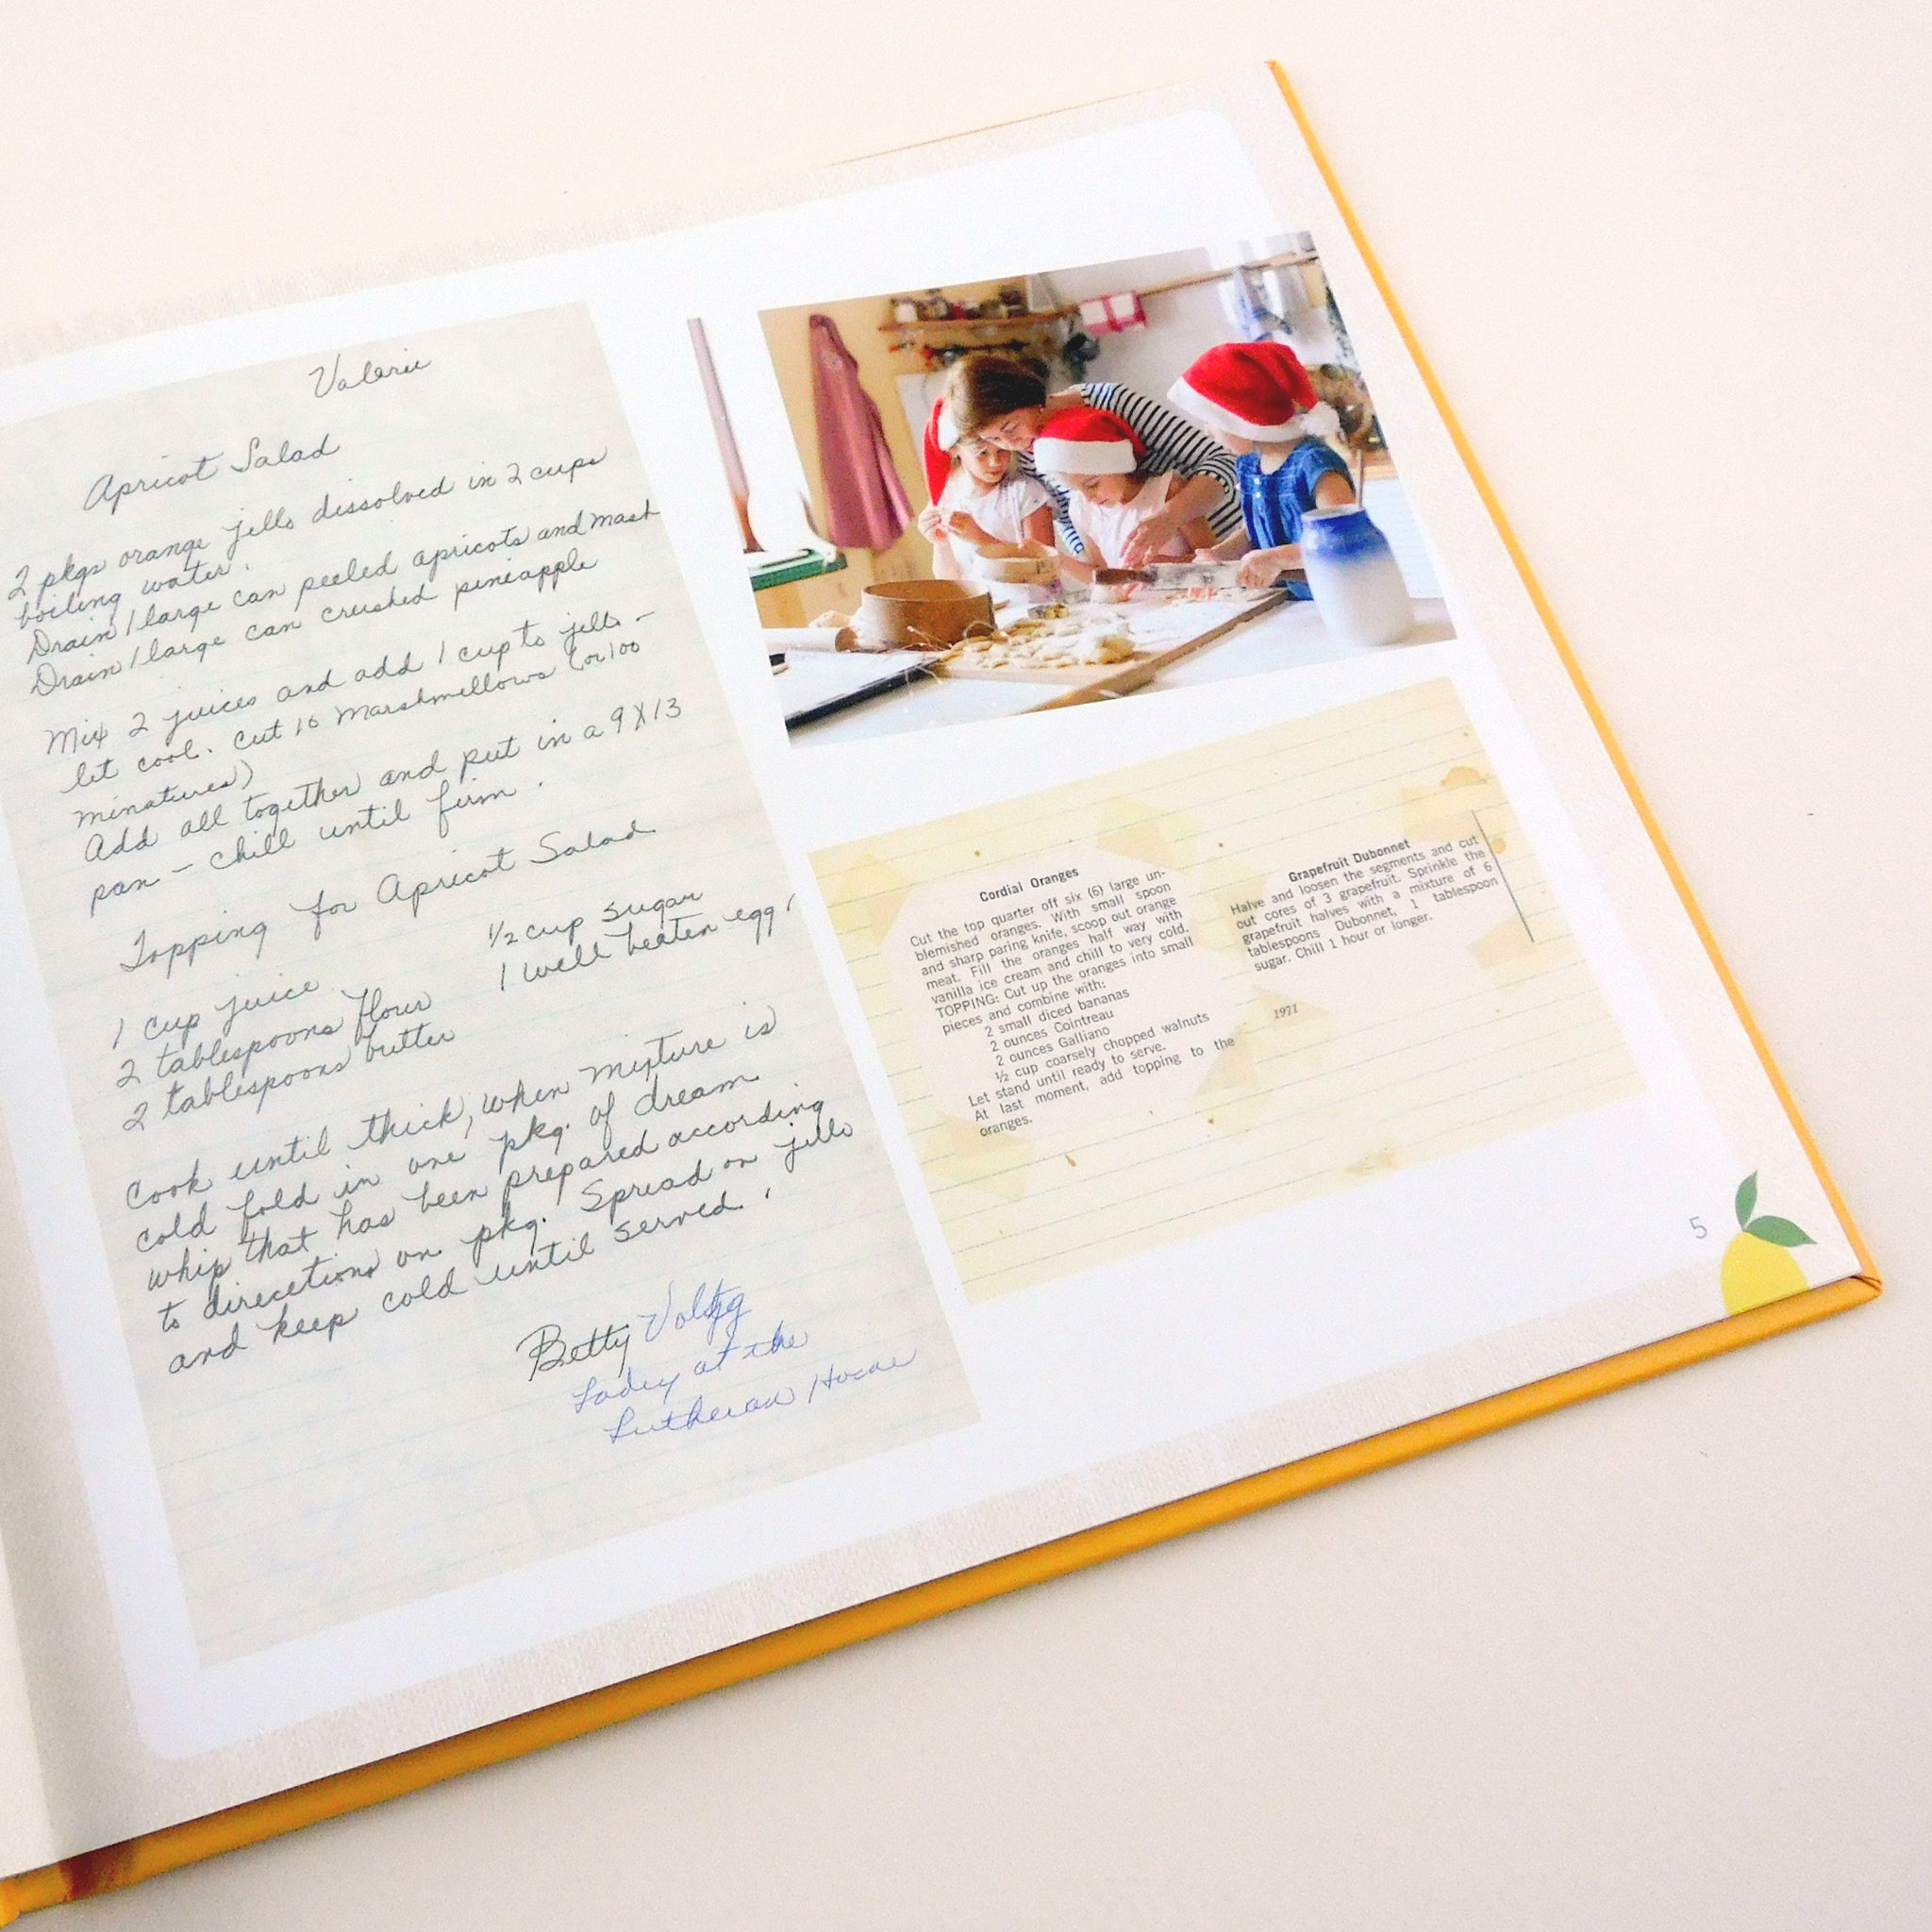 Valerie
Apricot Salad
2 pkgs orange jello dissolved in 2 cups
boiling water.
Drain 1 large can peeled apricots and mash
Drain 1 large can crushed pineapple
Mix 2 juices and add 1 cup to jello -
let cool. Cut 16 Marshmellows (or 100
minatures)
Add all together and put in a 9X13
pan - chill until firm.
Topping for Apricot Salad
1 cup juice
2 tablespoons flour
2 tablespoons butter
1/2 cup sugar
1 well beaten egg
Cook until thick, when mixture is
cold fold in one pkg. of dream
whip that has been prepared according
to direcetions on pkg. Spread on jello
and keep cold until served.
Betty
Ladey at the
Lutheran Home
Cordial Oranges
Cut the top quarter off six (6) large un-
blemished oranges. With small spoon
and sharp paring knife, scoop out orange
meat. Fill the oranges half way with
vanilla ice cream and chill to very cold.
TOPPING: Cut up the oranges into small
pieces and combine with:
2 small diced bananas
2 ounces Cointreau
2 ounces Galliano
½ cup coarsely chopped walnuts
Let stand until ready to serve.
At last moment, add topping to the
oranges.
Grapefruit Dubonnet
Halve and loosen the segments and cut
out cores of 3 grapefruit. Sprinkle the
grapefruit halves with a mixture of 6
tablespoons Dubonnet, 1 tablespoon
sugar. Chill 1 hour or longer.
1971
5